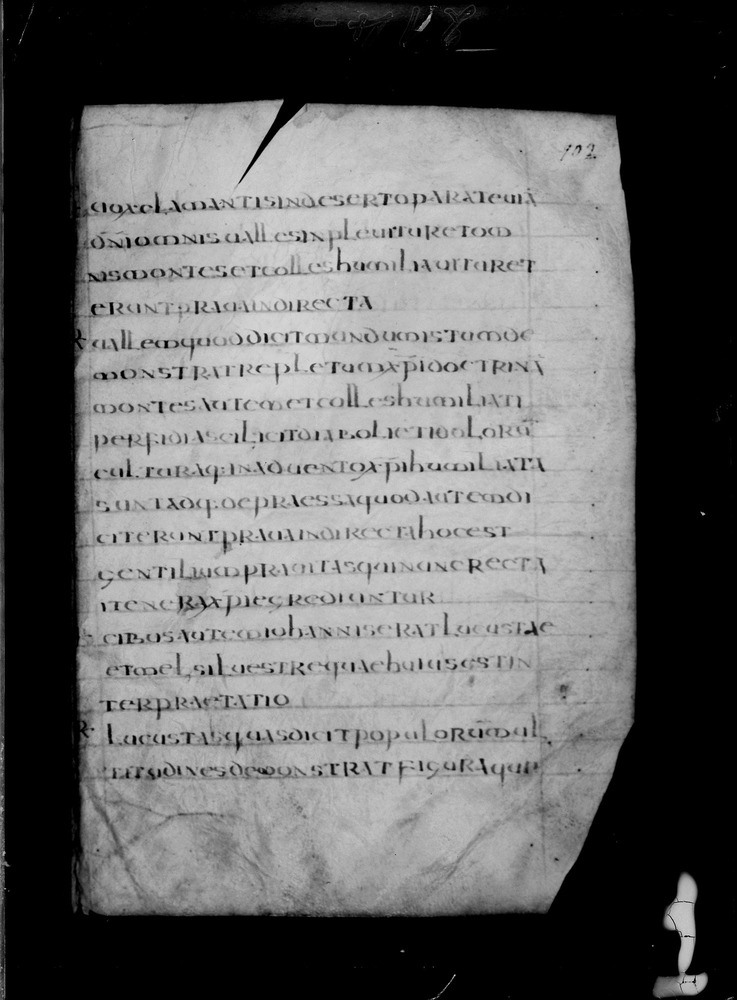 102
uoxclamantisindesertoparateuiā
dn̄iomnisuallesinpleuituretom
nismontesetcolleshumiliauituret
eruntprauaindirecta
R uallemquoddicitmundumistumde
monstratrepletumxp̄idoctrinā
montesautemetcolleshumiliati
perfidiascilicitdiabolietidolorū
culturaq·inaduentoxp̄ihumiliata
suntadq·depraessaquodautemdi
citeruntprauaindirectahocest
gentiliumprauitasquinuncrecta
iteneraxp̄iegrediuntur
cibusautemiohanniseratlucustae
etmelsiluestrequaehuiusestin
terpraetatio
R lucustasquasdicitpopulorūmul
titudinesdemonstratfiguraquae